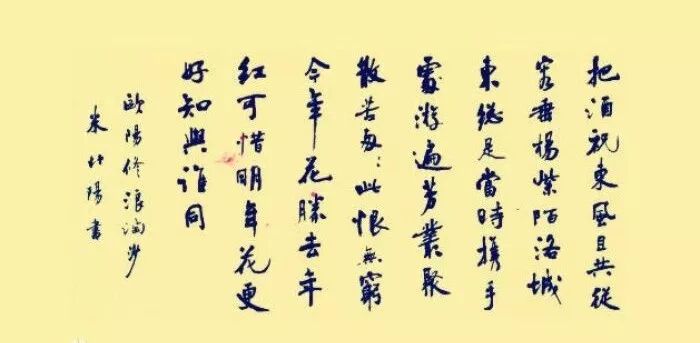 把酒祝東風且共從
容垂楊紫陌洛城
東總是當時攜手
處游遍芳叢聚
散苦匆:此恨無窮
今年花勝去年
紅可惜明年花更
好知與誰同
歐陽修浪淘沙
陽書